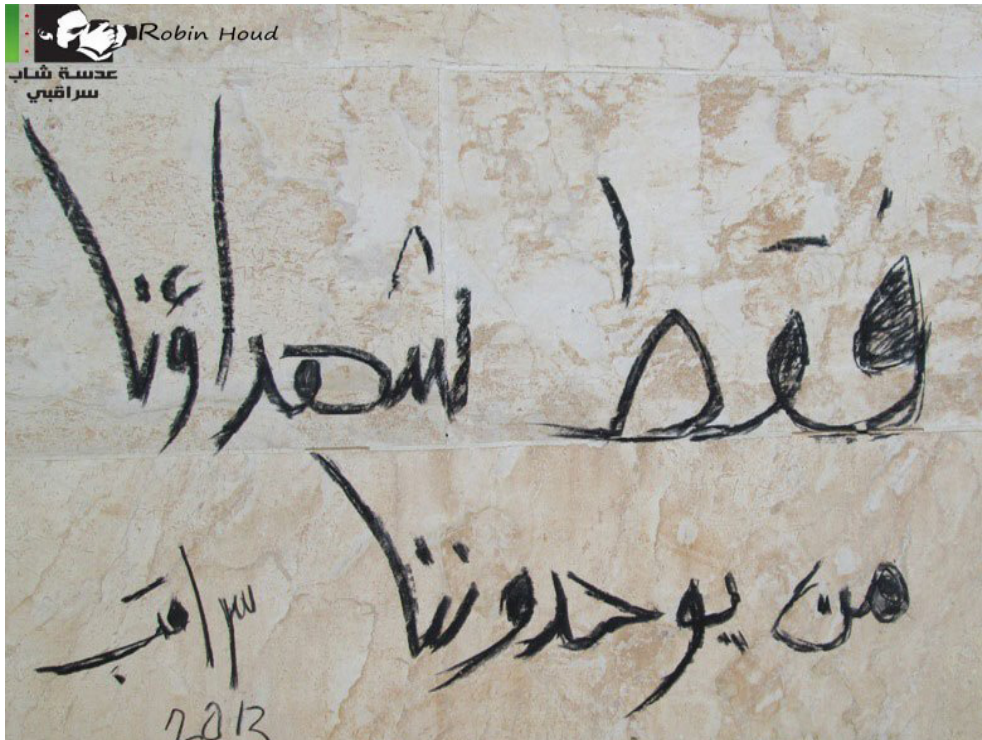 Robin Houd
عدسة شاب
سراقبي
فقط شهداؤنا
من يوحدوننا
سراقب
2013